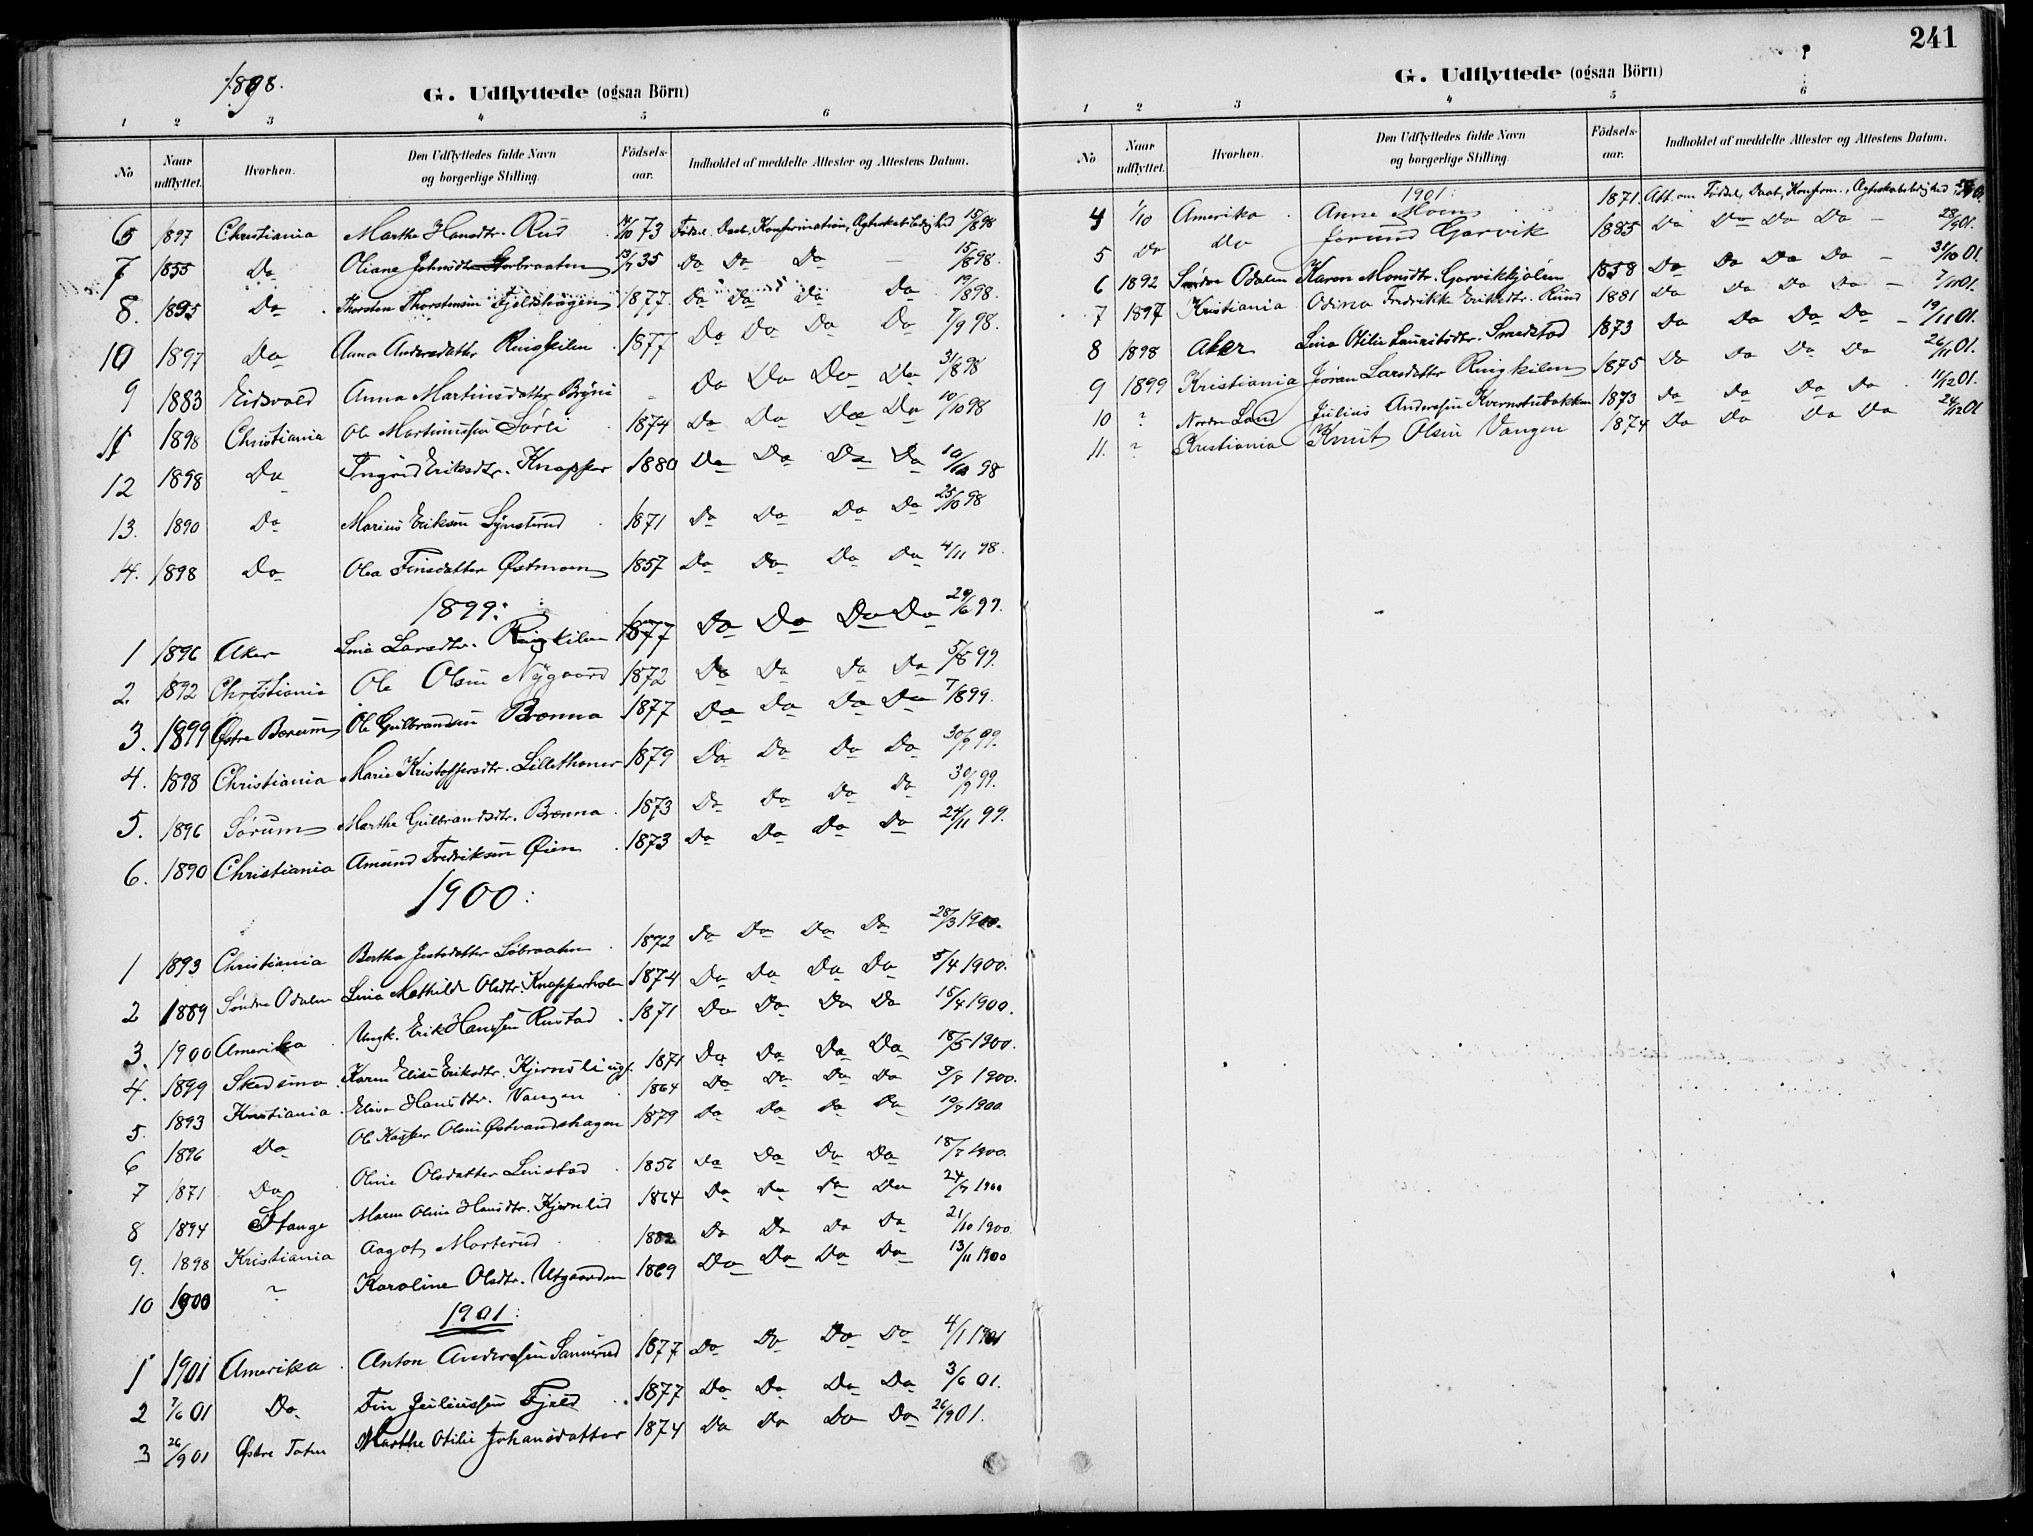 1898.
G. Udflyttede (ogsaa Börn)
1 2 3 4 5 6
No Naar udflyttet. Hvorhen. Den Udflyttedes fulde Navn og borgerlige Stilling. Födsels-aar. Indholdet af meddelte Attester og Attestens Datum.
6 1897 Christiania Marthe Hansdtr. Rud 73 Fødsel, Daab, Konfirmation, Ægteskabsledighed 15/8 98
7 1855 Do Oliane Johnsdtr 35 Do Do Do 15/8 98.
8. 1895 Do Thorsten Thorstensen Fjeldshagen 1877. Do Do Do Do 19/8 98.
10 1897 Do Anna Andersdatter Ringkilen 1877 Do Do Do Do 7/9 98.
9 1883 Eidsvold Anna Martinusdatter Do Do Do Do 31/8 98
11 1898 Christiania Ole Martinussen Sørli 1874 Do Do Do Do 10/10 98
12 1898 Do Ingrid Eriksdtr. Knapper 1880 Do Do Do Do 10/10 98
13. 1890 Do Marius Eriksen 1871 Do Do Do Do 25/10 98
14. 1898 Do Olea Finsdatter Østmoen 1857 Do Do Do Do 4/11 98.
1899:
1 1896 Aker Lina Larsdtr. Ringkilen 1877 Do Do Do Do 29/6 99.
2. 1892 Christiania Ole Olsen Nygaard 1872 Do Do Do Do 5/8 99.
3. 1899 Østre Bærum Ole Gulbrandsen Brenna 1877 Do Do Do Do 7/8 99.
4. 1898 Christiania Marie Kristoffersdtr. Lillethoner 1879 Do Do Do Do 30/9 99.
5. 1896 Sørum Marthe Gulbrandsdtr. Brenna 1873 Do Do Do Do 30/9 99.
6. 1890 Christiania Amund Fredriksen Øien 1873 Do Do Do Do 24/11 99.
1900:
1 1893 Christiania Bertha Jensdatter Løbraaten 1872 Do Do Do Do 28/3 1900.
2 1889 Søndre Odalen Lina Mathilde Olsdtr. Knapperholen 1874 Do Do Do Do 5/4 1900.
3. 1900 Amerika Ungk. Erik Hanssen Rustad 1871 Do Do Do Do 18/4 1900.
4. 1899 Skedsmo Karen Elise Eriksdtr. Kjernsli ugf. 1871 Do Do Do Do 18/5 1900.
5. 1893 Kristiania Elise Hansdtr. Vangen 1864 Do Do Do Do 9/7 1900.
6 1896 Do Ole Kasper Olsen Østvandshagen 1879 Do Do Do Do 10/7 1900
7 1871 Do Oline Olsdatter Linstad 1856 Do Do Do Do 18/7 1900.
8 1894 Stange Maren Oline Hansdtr. Kjernlid 1864 Do Do Do Do 24/7 1900
9. 1898 Kristiania Aagot Morterud 1882 Do Do Do Do 21/10 1900.
10 1900 " Karoline Olsdtr. Utgaarden 1869 Do Do Do Do 13/11 1900
1901:
1 1901 Amerika Anton Andersen Sannerud 1877 Do Do Do Do 4/1 1901
2 7/6 01 Do Fin Juliussen Fjeld 1877 Do Do Do Do 3/6 01.
3 26/9 01 Østre Toten Marthe Otilie Johansdatter 1874 Do Do Do Do 26/9 01.
241
G. Udflyttede (ogsaa Börn)
1 2 3 4 5 6
No Naar udflyttet. Hvorhen. Den Udflyttedes fulde Navn og borgerlige Stilling. Födsels-aar. Indholdet af meddelte Attester og Attestens Datum.
1901:
4 1/10 Amerika Anne Moen 1871 Att. om Fødsel, Daab, Konfirm., Ægteskabsledighed
5 Do Do Jorund Garvik 1885 Do Do Do Do 28/9 01.
6 1892 Søndre Odalen Karen Monsdtr. Garvikhjølen 1858 Do Do Do Do 31/10 01.
7 1897 Kristiania Odina Fredrikke Eriksdtr. Rund 1881 Do Do Do Do 7/11 01.
8 1898 Aker Lina Otilie Lauritsdtr. Smedstad 1873 Do Do Do Do 19/11 01.
9 1899 Kristiania Jøran Larsdatter Ringkilen 1875 Do Do Do Do 26/11 01.
10 ? Nordre Land Julius Andersen Kvernstubakken 1873 Do Do Do Do 11/12 01.
11. " Kristiania Knut Olsen Vangen 1874 Do Do Do Do 24/12 01